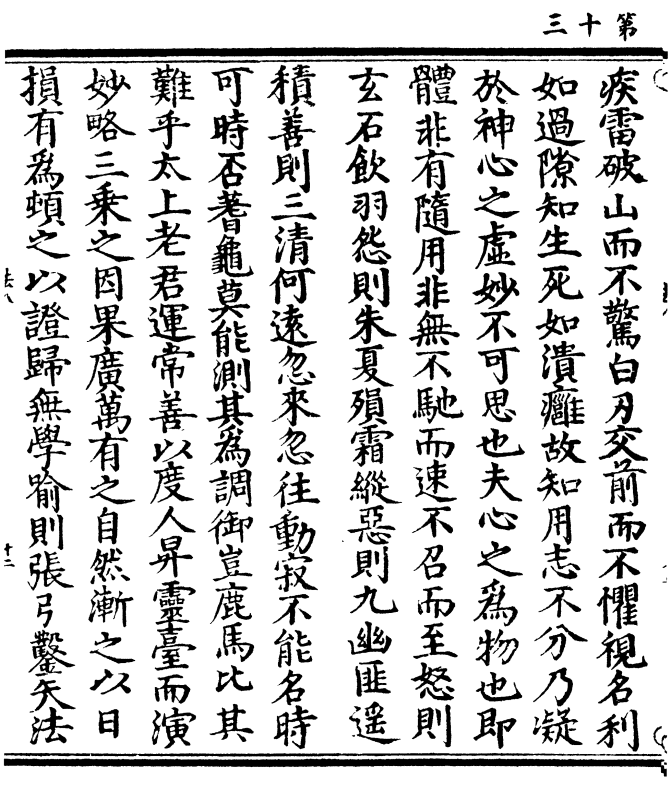 第十三
疾雷破山而不驚白刃交前而不懼視名利
如過隙知生死如潰癰故知用志不分乃凝
於神心之虛妙不可思也夫心之爲物也即
體非有隨用非無不馳而速不召而至怒則
玄石飲羽怨則朱夏殞霜縱惡則九幽匪遥
積善則三清何遠忽來忽往動寂不能名時
可時否蓍龜莫能測其爲調御豈鹿馬比其
難乎太上老君運常善以度人昇靈臺而演
妙略三乗之因果廣萬有之自然漸之以日
損有爲頓之以證歸無學喻則張弓鑿矢法
法八
十二